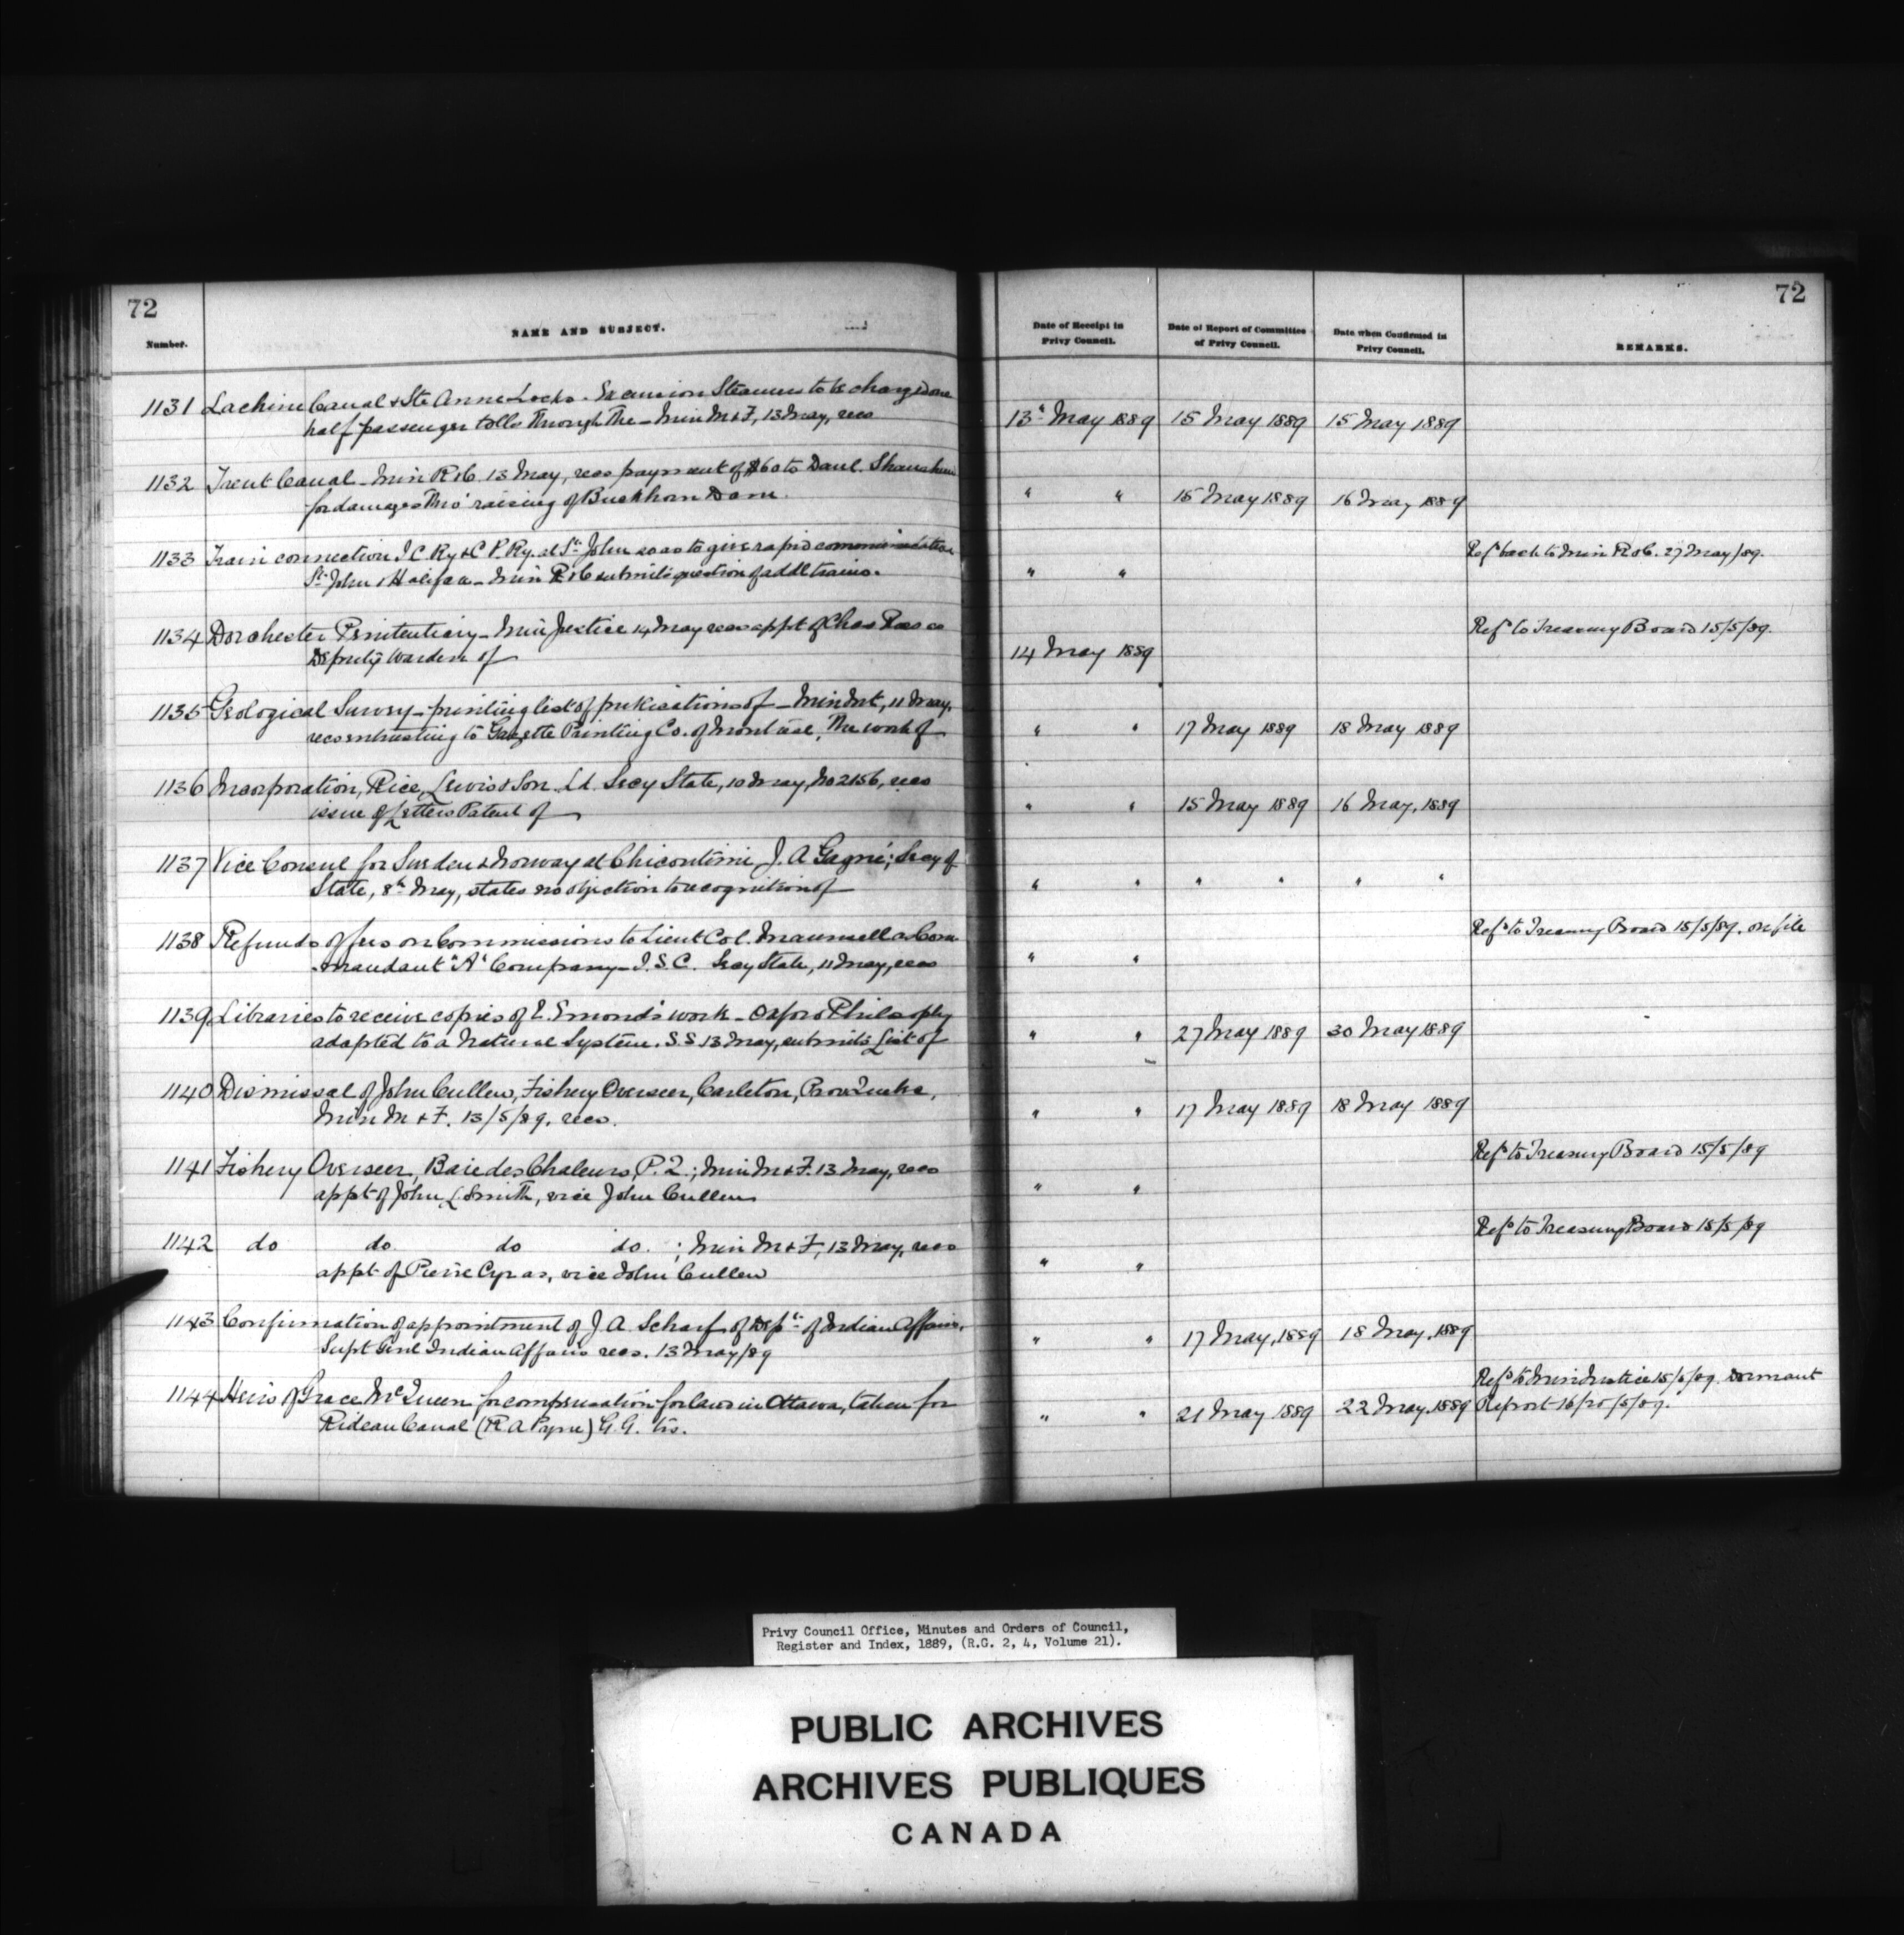 72
72
Number.
NAME AND SUBJECT.
Date of Receipt in Privy Council.
Date of Report of Committee of Privy Council.
Date when Confirmed in Privy Council.
REMARKS.
1131 Lachine Canal & Ste Anne Locks - Excursion Steamers to be charged one
half passenger tolls through the - Min M & F, 13 May, recs
13th May 1889 15 May 1889 15 May 1889
1132 Trent Canal - Min R & C 13 May, recs payment of $60 to Danl.
for damages thro' raising of Buckhorn Dam.
" " 15 May 1889 16 May 1889
1133 Train connection I C Ry & C P Ry. at St. John so as to give rapid communication
St. John & Halifax - Min R & C submits question of addl trains.
" "
Refd back to Min R & C. 27 May/89.
1134 Dorchester Penitentiary - Min Justice 14 May recs appt of Chas Ross as
Deputy Warden of
14 May 1889
Refd to Treasury Board 15/5/89.
1135 Geological Survey - printing list of publications of - Min Int, 11 May,
recs entrusting to Gazette Printing Co. of Montreal, the work of
" " 17 May 1889 18 May 1889
1136 Incorporation, Rice, Lewis & Son Ld. Secy State, 10 May, No 2156, recs
issue of Letters Patent of
" " 15 May 1889 16 May, 1889
1137 Vice Consul for Sweden & Norway at Chicoutimi J. A Gagné; Secy of
State, 8th May, states no objection to recognition of
" " " " " "
1138 Refunds of fees on Commissions to Lieut Col. Maunsell as Com-
mandant "A" Company - I. S. C. Secy State, 11 May, recs
" "
Refd to Treasury Board 15/5/89. on file
1139 Libraries to receive copies of E. Emond's work - Oxford Philosophy
adapted to a Natural System. S.S 13 May, submits List of
" " 27 May 1889 30 May 1889
1140 Dismissal of John Cullen, Fishery Overseer, Carleton, Prov Quebec,
Min M & F. 13/5/89. recs.
" " 17 May 1889 18 May 1889
1141 Fishery Overseer, Baie des Chaleurs, P. Q.; Min M & F. 13 May, recs
appt of John L Smith, vice John Cullen
" "
Refd to Treasury Board 15/5/89
1142 do do do do. ; Min M & F, 13 May, recs
appt of Pierre Cyr as, vice John Cullen
" "
Refd to Treasury Board 15/5/89
1143 Confirmation of appointment of J. A. Scharf of Dept. of Indian Affairs.
Supt Genl Indian Affairs recs. 13 May/89
" " 17 May, 1889 18 May, 1889
1144 Heirs of Grace McQueen for compensation for land in Ottawa, taken for
Rideau Canal (R A Payne) G. G. trs.
" " 21 May 1889 22 May, 1889
Refd to Min Justice 15/5/89 Dormant
Report 16/20/5/89.
Privy Council Office, Minutes and Orders of Council,
Register and Index, 1889, (R.G. 2, 4, Volume 21).
PUBLIC ARCHIVES
ARCHIVES PUBLIQUES
CANADA